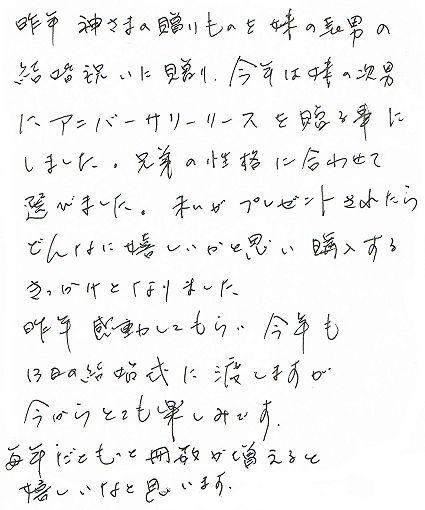 昨年 神さまの贈りものを妹の長男の
結婚祝いに贈り、今年は妹の次男
に、アニバーサリーリースを贈る事に
しました。兄弟の性格に合わせて
選びました。私がプレゼントされたら
どんなに嬉しいかと思い購入する
きっかけとなりました
昨年 感動してもらい 今年も
13日の結婚式に渡しますが
今からとても楽しみです。
毎年だともっと冊数が増えると
嬉しいなと思います。